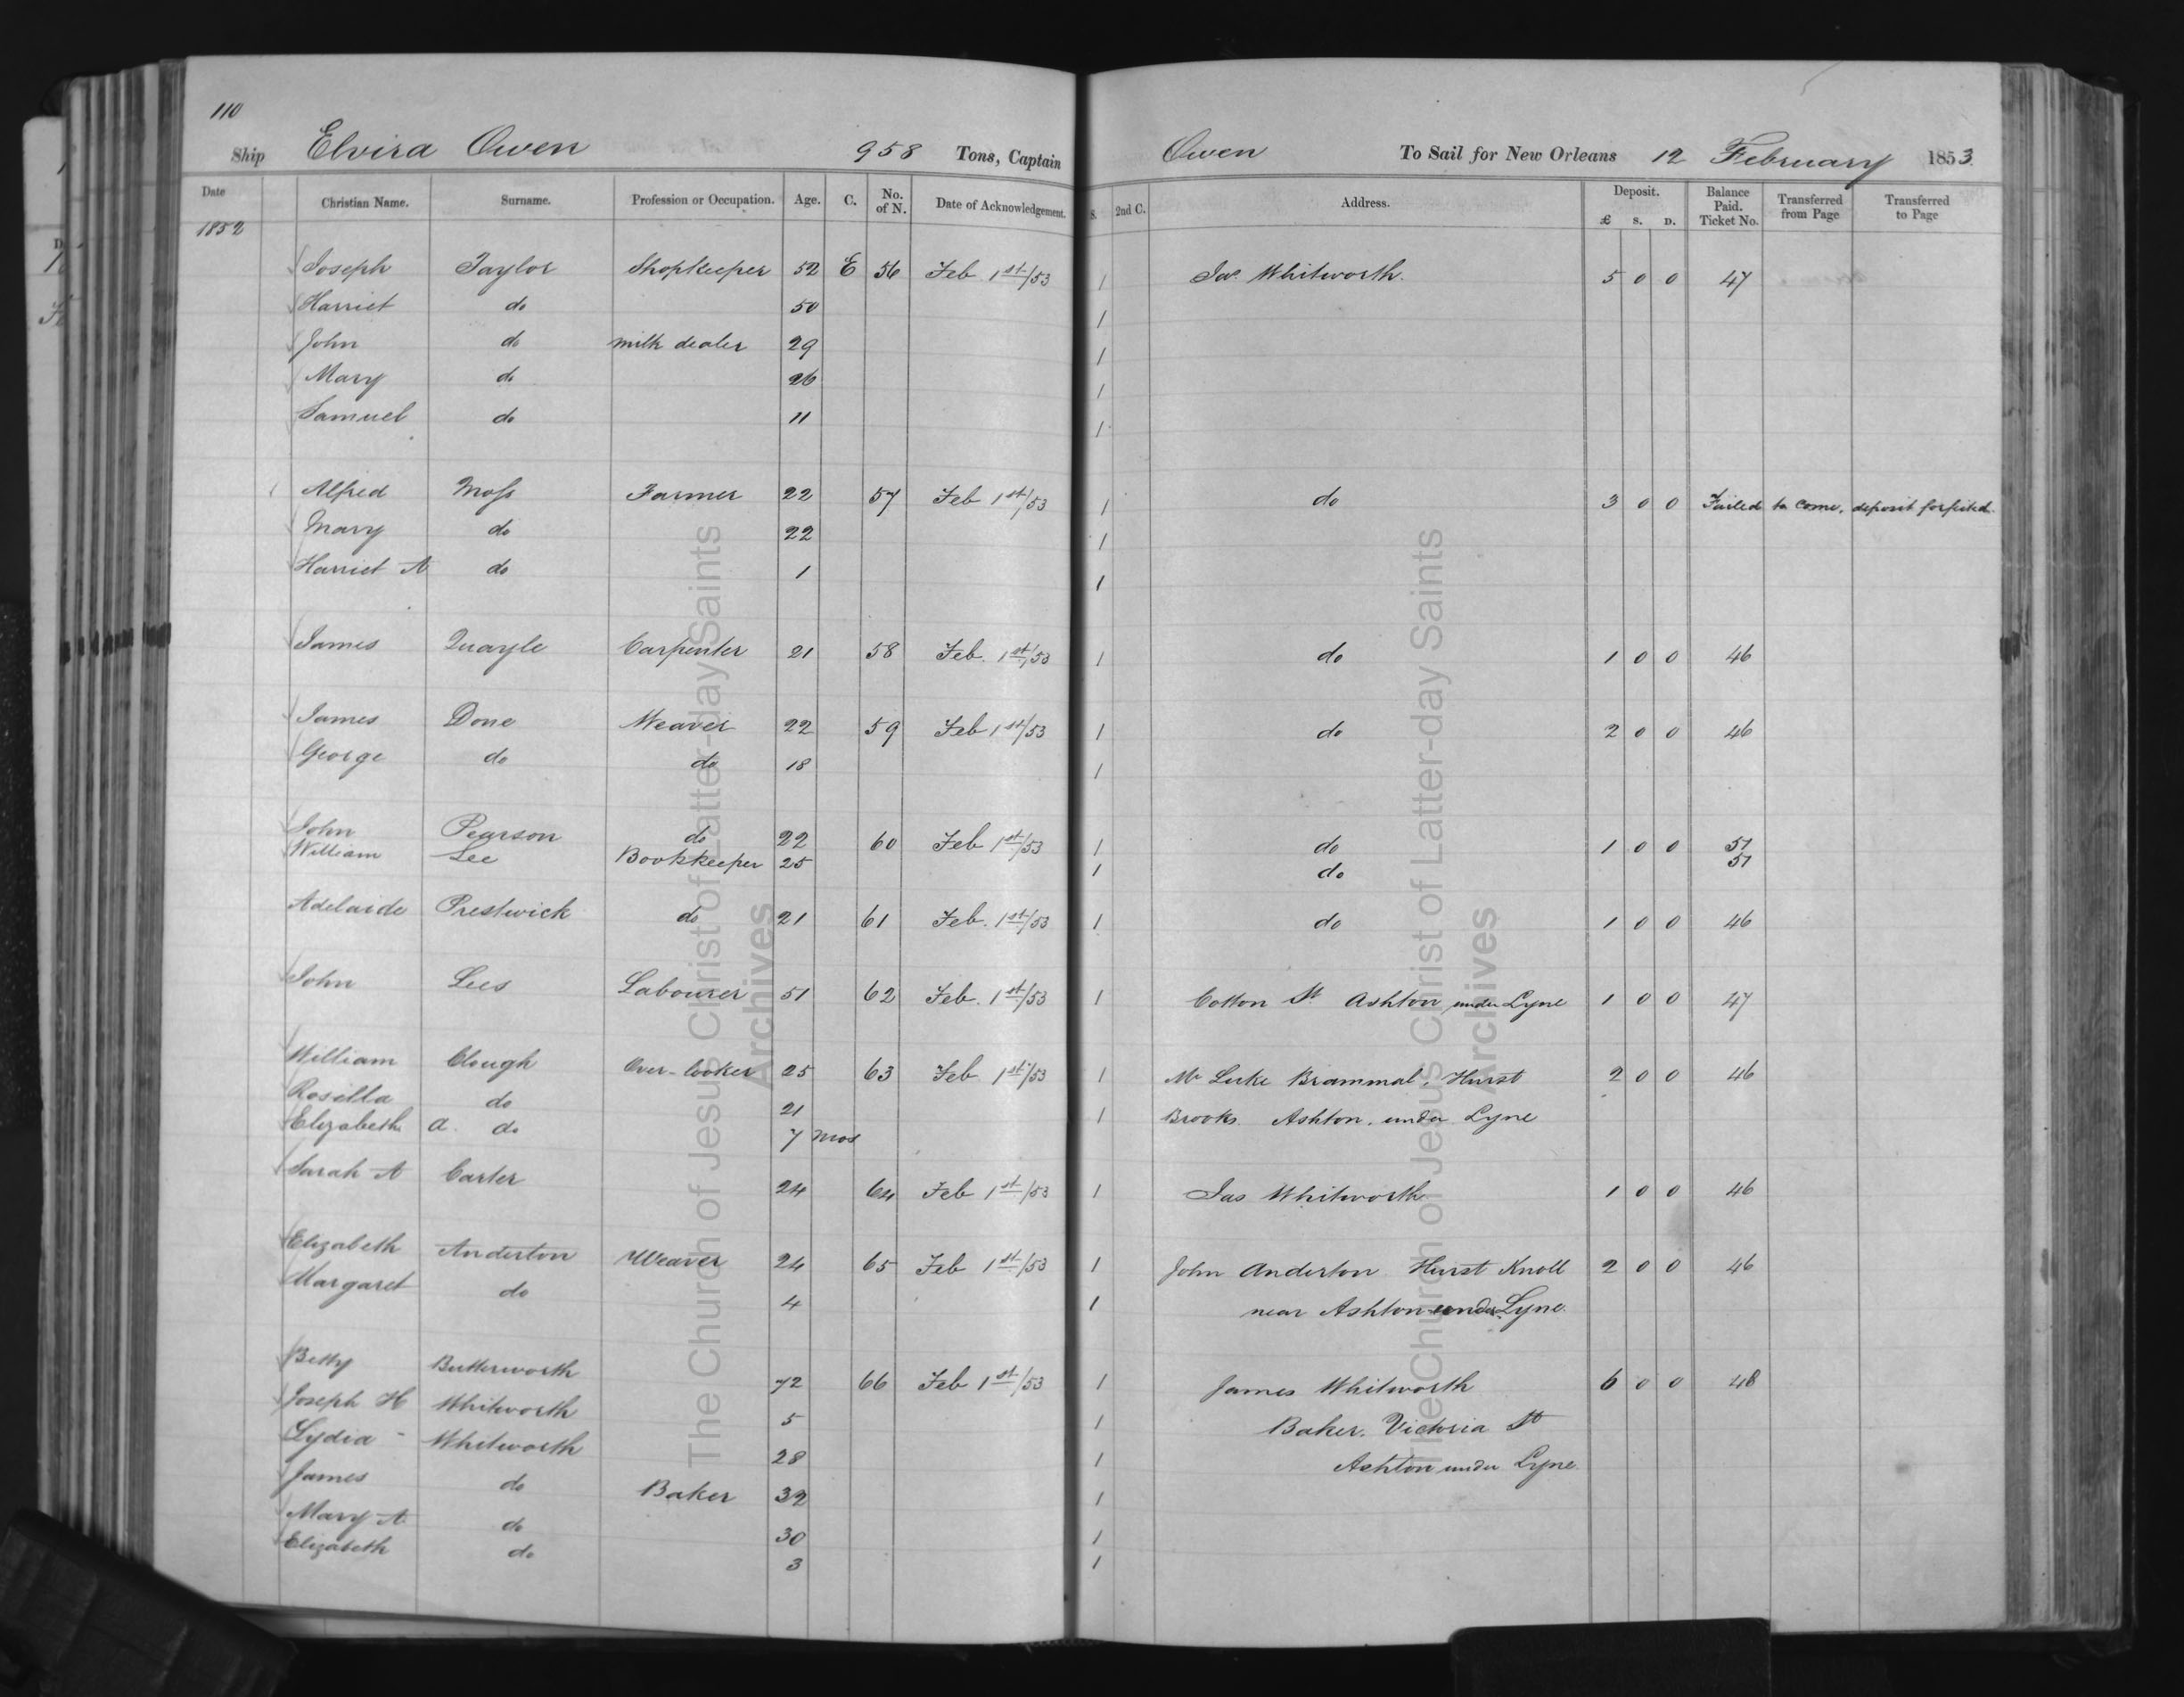 110
Ship Elvira Owen 958 Tons, Captain Owen To Sail for New Orleans 12 February 1853
Date Christian Name. Surname. Profession or Occupation. Age. C. No. of N. Date of Acknowledgement. S. 2nd C. Address. Deposit. £ S. D. Balance Paid. Ticket No. Transferred from Page Transferred to Page
1852
Joseph Taylor Shopkeeper 52 E 56 Feb 1st/53 1 Jas. Whitworth. 5 0 0 47
Harriet do 50 1
John do milk dealer 29 1
Mary do 26 1
Samuel do 11 1
Alfred Moss Farmer 22 57 Feb 1st/53 1 do 3 0 0 Failed to come, deposit forfeited.
Mary do 22 1
Harriet A do 1 1
James Quayle Carpenter 21 58 Feb. 1st/53 1 do 1 0 0 46
James Done Weaver 22 59 Feb 1st/53 1 do 2 0 0 46
George do do 18 1
John Pearson do 22 60 Feb 1st/53 1 do 1 0 0 51
William Lee Bookkeeper 25 1 do 51
Adelaide Prestwick do 21 61 Feb. 1st/53 1 do 1 0 0 46
John Lees Labourer 51 62 Feb. 1st/53 1 Cotton St Ashton under Lyne 1 0 0 47
William Clough Over-looker 25 63 Feb 1st/53 1 Mr Luke Brammal, Hurst 2 0 0 46
Rosilla do 21 1 Brooks. Ashton, under Lyne
Elizabeth a. do 7 mos
Sarah A Carter 24 64 Feb 1st/53 1 Jas Whitworth 1 0 0 46
Elizabeth Anderton Weaver 24 65 Feb 1st/53 1 John Anderton Hurst Knoll 2 0 0 46
Margaret do 4 1 near Ashton under Lyne.
Betty Butterworth 72 66 Feb 1st/53 1 James Whitworth 6 0 0 48
Joseph H Whitworth 5 1 Baker. Victoria St
Lydia - Whitworth 28 1 Ashton under Lyne.
James do Baker 32 1
Mary A do 30 1
Elizabeth do 3 1
The Church of Jesus Christ of Latter-day Saints
Archives
The Church of Jesus Christ of Latter-day Saints
Archives